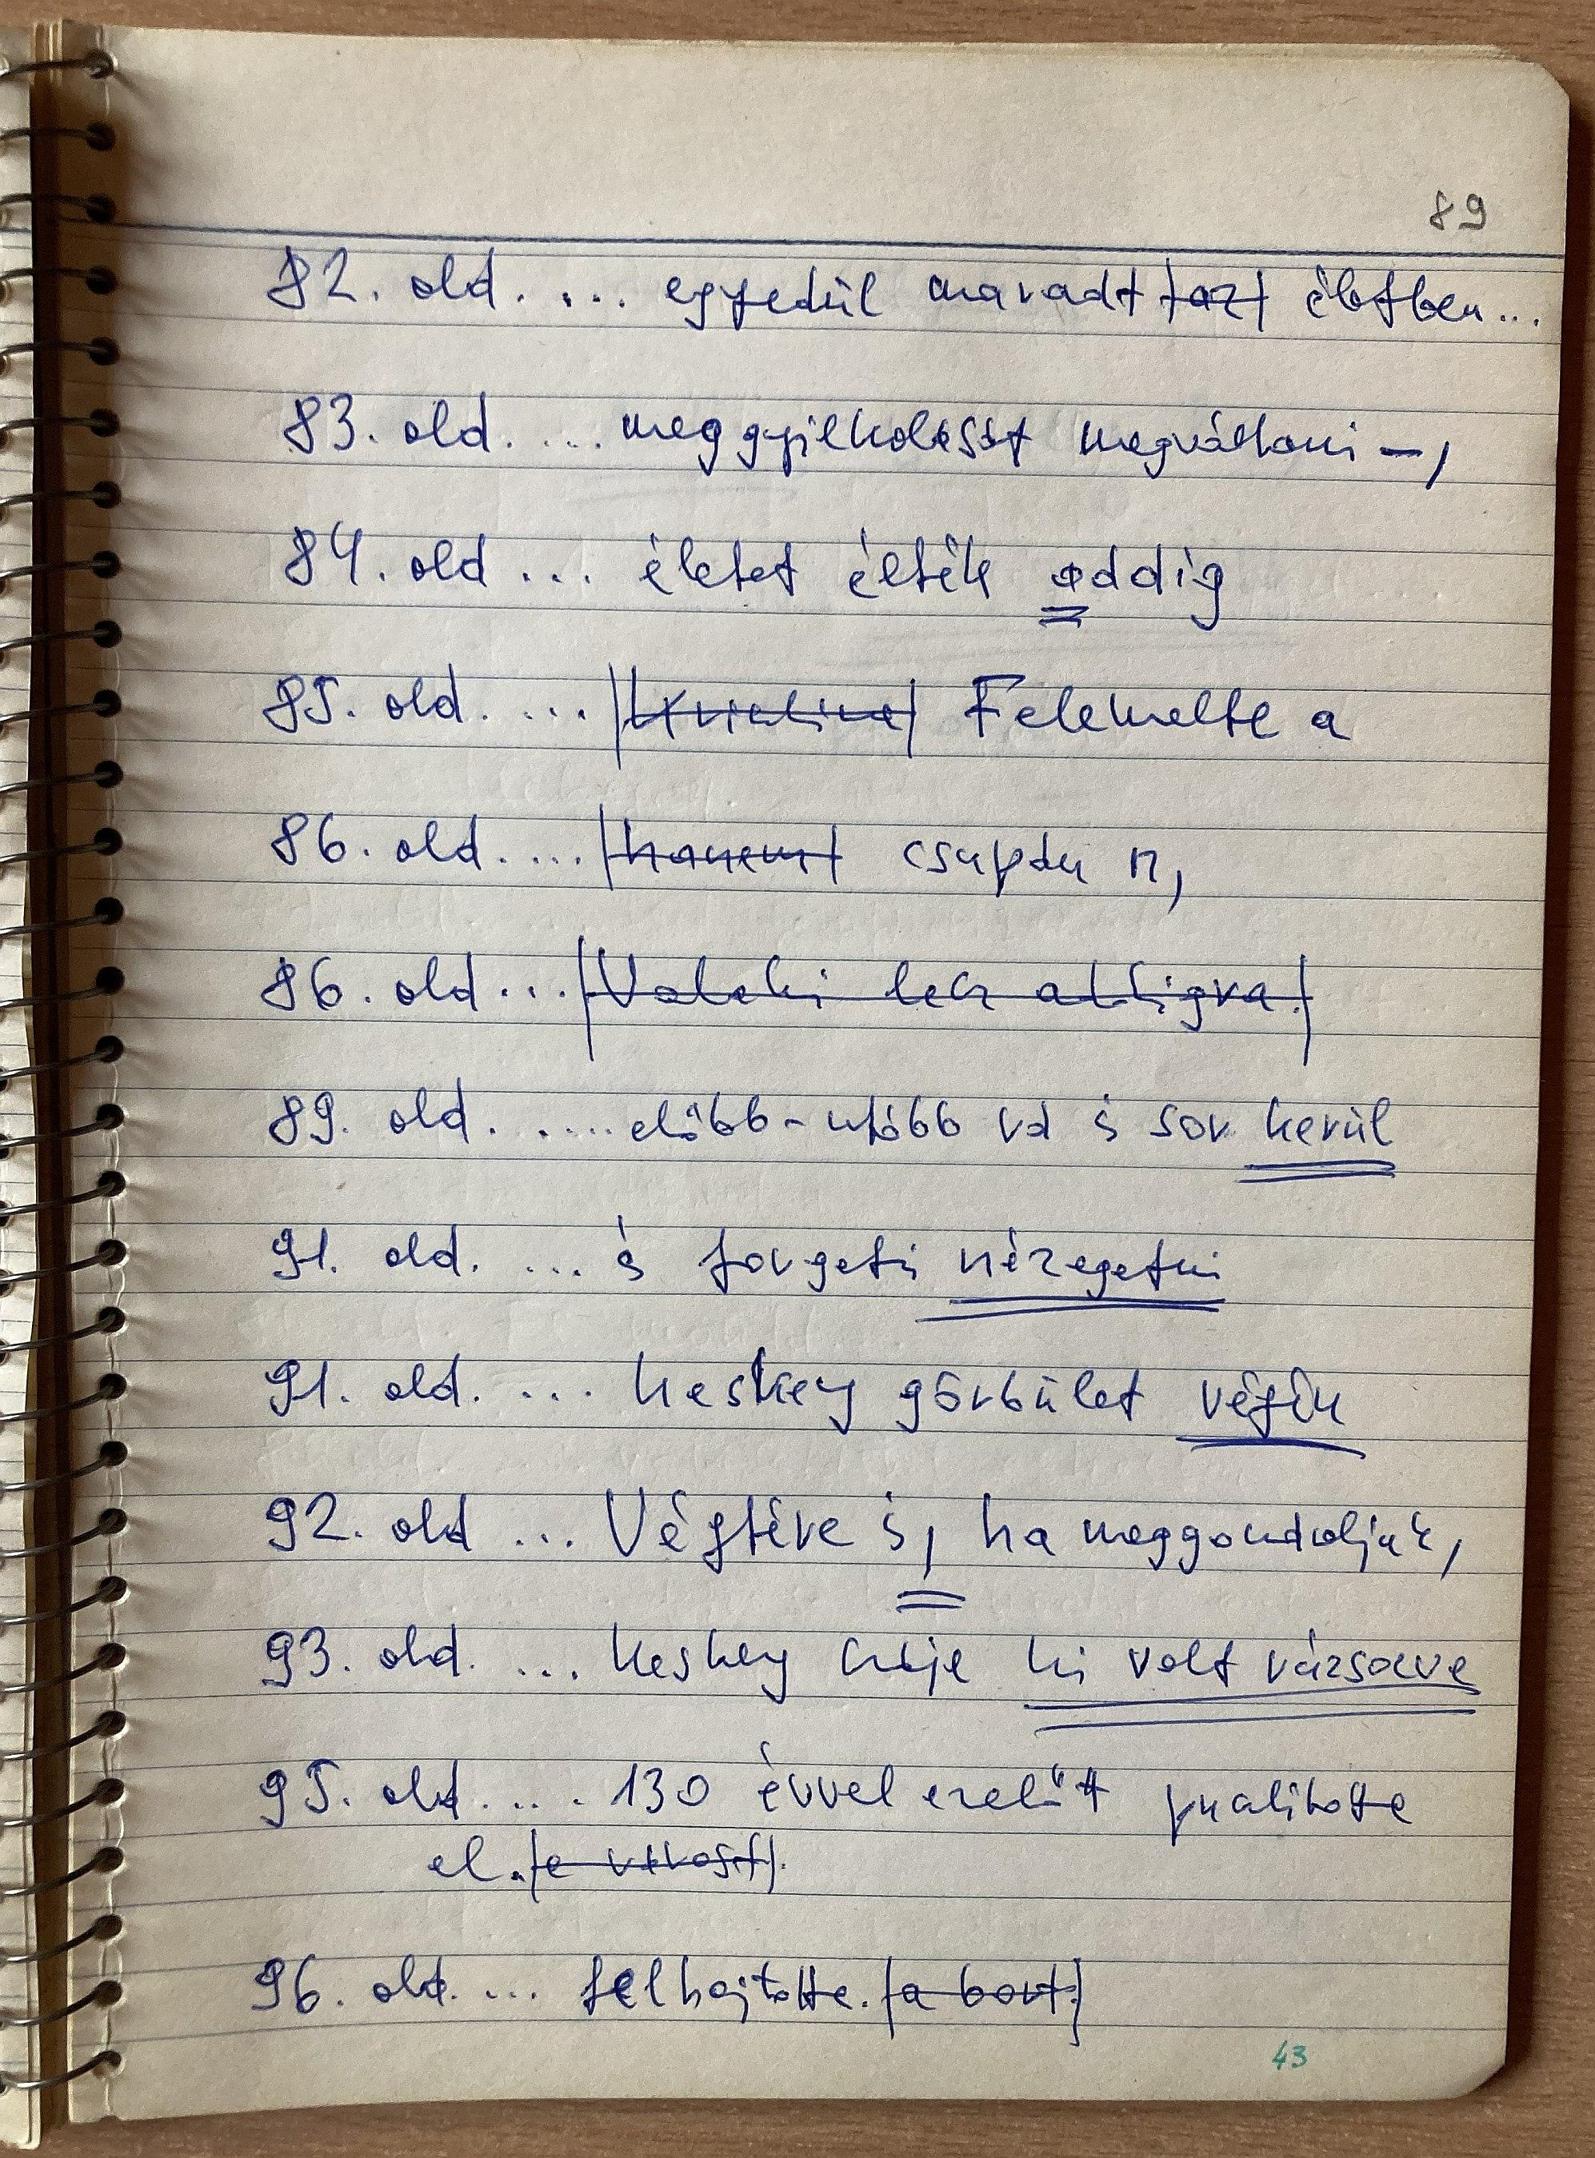 89
82. old. ... egyedül maradt az életben...
83. old. ... meggyilkolását megváltani –,
84. old ... életet éltek addig
85. old. ... Felemelte a
86. old. ... hanem csupán
86. old ... Valaki lesz
89. old. .... előbb-utóbb rá is sor kerül
91. old. ... és forgatni nézegetni
91. old. ... keskeny görbület végén
92. old ... Végtére is, ha meggondoljuk,
93. old. ... keskeny csíkja ki volt vázsolva
95. old. ... 130 évvel ezelőtt pusztította
el. a várost.
96. old. ... felhajtotta. a bort.
43